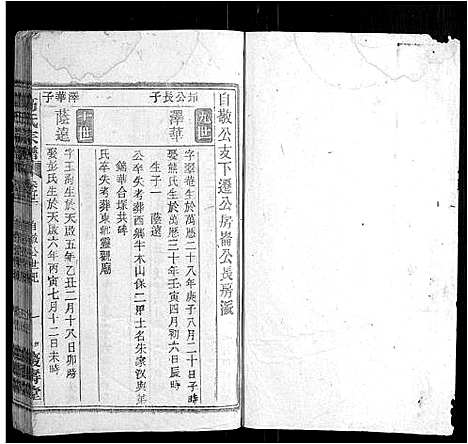 自敬公支下遷公房崙公長房派
公長子
九世
澤華
字翠菴生於萬曆二十八年庚子八月二十日子時
娶熊氏生於萬曆三十年壬寅四月初六日辰時
生子一 蔭遠
公卒失考葬酉鄉牛木山保二甲土名朱家汊與年
鎬華合塚共碑
氏卒失考葬東北靈觀廟
澤華子
十世
蔭遠
字玉喬生於天啟五年乙丑二月十八日卯時
娶彭氏生於天啟六年丙寅七月十二日未時
氏宗譜
自敬公世紀
一
慶壽堂